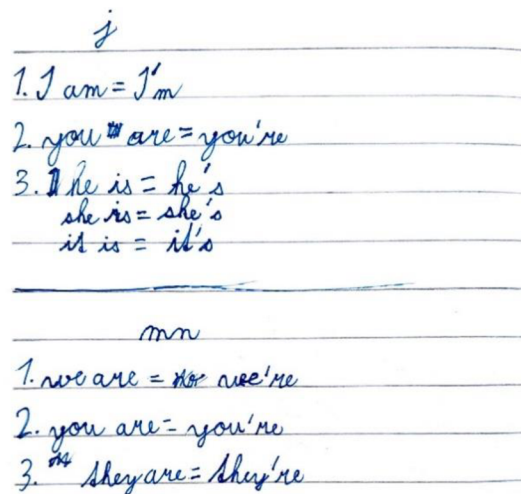 j
1. I am = I'm
2. you are = you're
3. he is = he's
she is = she's
it is = it's
mn
1. we are = we're
2. you are = you're
3. they are = they're